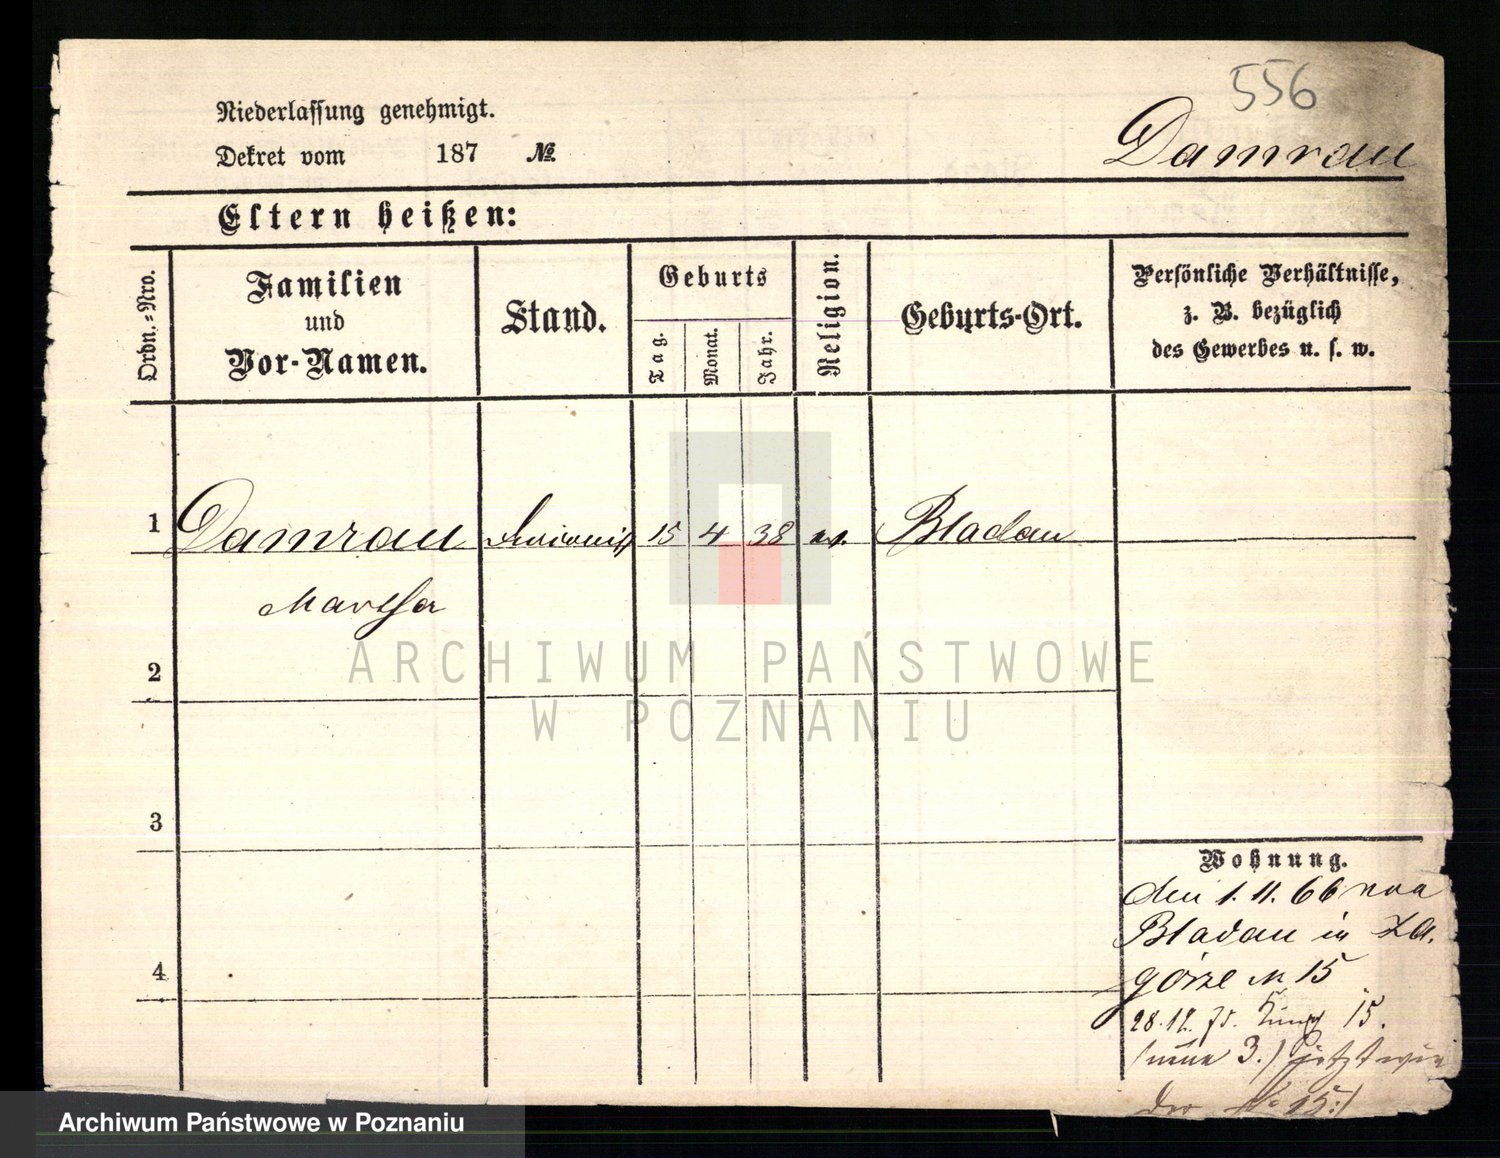 556
Niederlassung genehmigt.
Dekret vom 187 №
Damrau
Eltern heißen:
Ordn.-Nro.
Familien
und
Vor-Namen.
Stand.
Geburts
Tag.
Monat.
Jahr.
Religion.
Geburts-Ort.
Persönliche Verhältnisse,
z. B. bezüglich
des Gewerbes u. s. w.
1 Damrau 15 4 38 ev. Bladau
Martha
2
3
4
Wohnung.
den 1. 11. 66 von
Bladau in Za.
górze № 15
28.12. 75. 15.
(neue 3.) jetzt wie
der № 15.)
ARCHIWUM PAŃSTWOWE
W POZNANIU
Archiwum Państwowe w Poznaniu